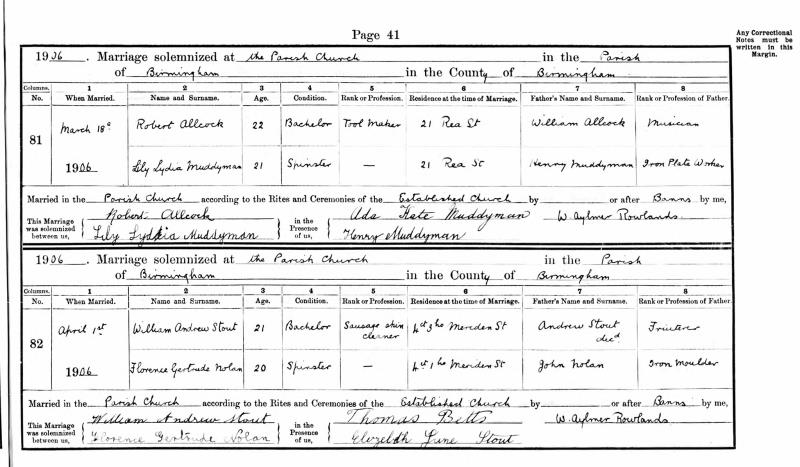 Page 41
Any Correctional
Notes must be
written in this
Margin.
1906. Marriage solemnized at the Parish Church in the Parish
of Birmingham in the County of Birmingham
Columns. 1 2 3 4 5 6 7 8
No. When Married. Name and Surname. Age. Condition. Rank or Profession. Residence at the time of Marriage. Father's Name and Surname. Rank or Profession of Father.
81 March 18 Robert Allcock 22 Bachelor Tool Maker 21 Rea St William Allcock Musician
1906 Lily Lydia Muddyman 21 Spinster — 21 Rea St Henry Muddyman Iron Plate Worker
Married in the Parish Church according to the Rites and Ceremonies of the Established Church by or after Banns by me,
This Marriage was solemnized between us, Robert Allcock in the Presence of us, Ada Kate Muddyman W. Aylmer Rowlands
Lily Lydia Muddyman Henry Muddyman
1906. Marriage solemnized at the Parish Church in the Parish
of Birmingham in the County of Birmingham
Columns. 1 2 3 4 5 6 7 8
No. When Married. Name and Surname. Age. Condition. Rank or Profession. Residence at the time of Marriage. Father's Name and Surname. Rank or Profession of Father.
82 April 1st William Andrew Stout 21 Bachelor Sausage skin cleaner 4ct 3ho Meriden St Andrew Stout decd
1906 Florence Gertrude Nolan 20 Spinster — 4ct 1ho Meriden St John Nolan Iron Moulder
Married in the Parish Church according to the Rites and Ceremonies of the Established Church by or after Banns by me,
This Marriage was solemnized between us, William Andrew Stout in the Presence of us, Thomas Betts W. Aylmer Rowlands
Florence Gertrude Nolan Stout